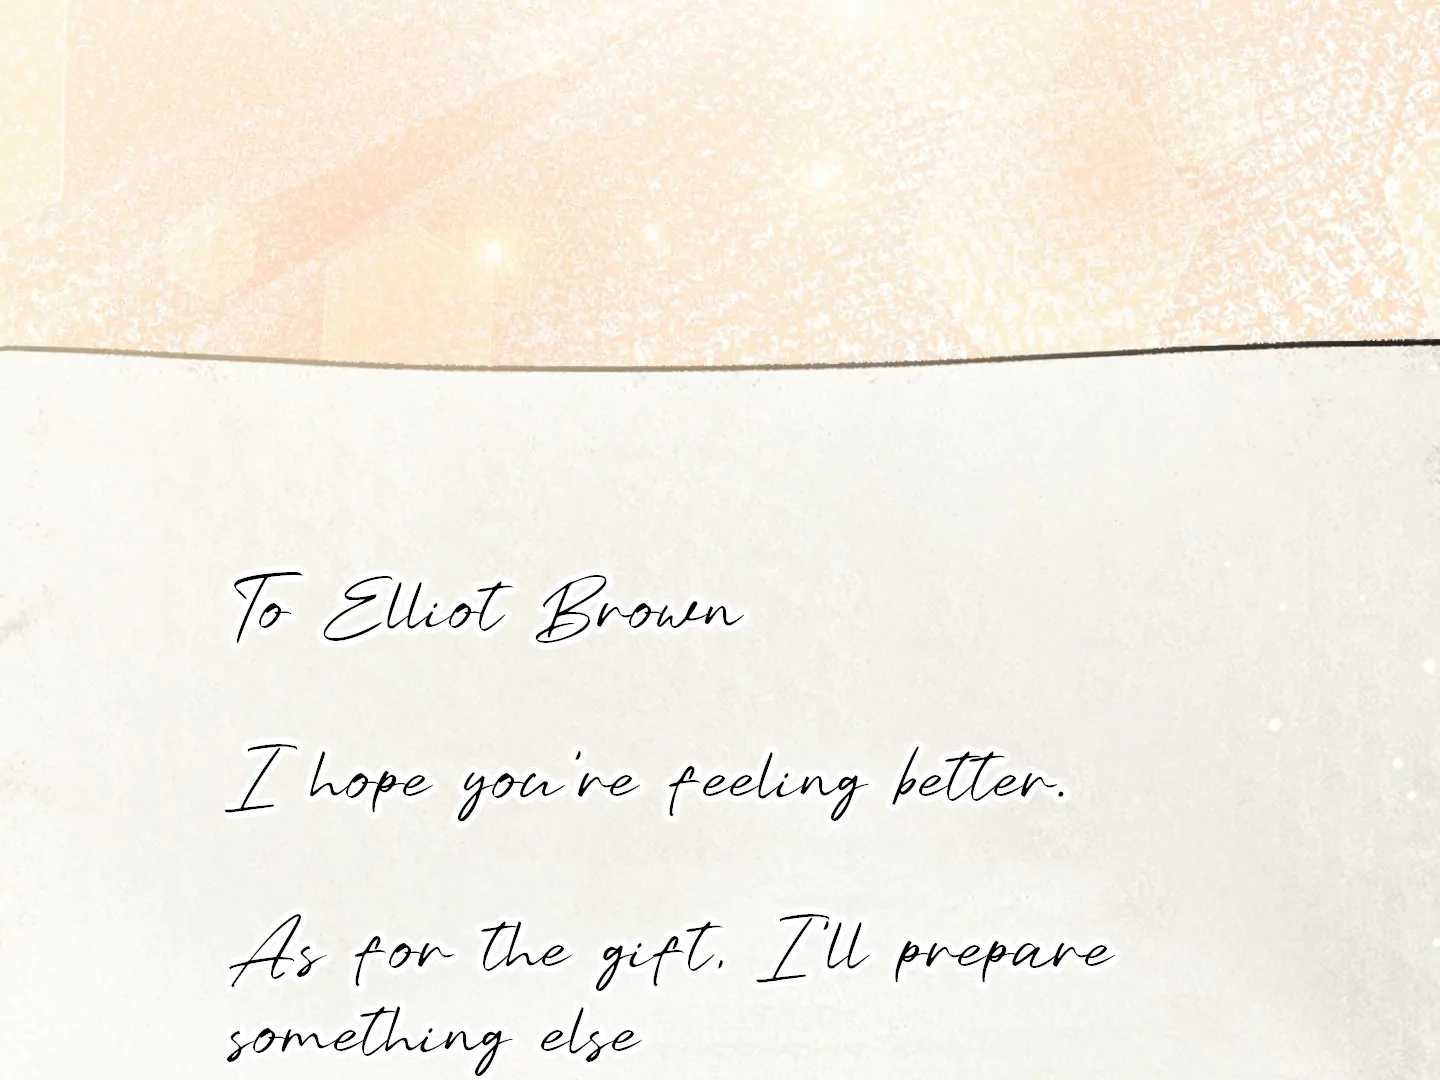 To Elliot Brown
I hope you're feeling better.
As for the gift, I'll prepare
something else